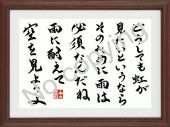 どうしても虹が
見たいというなら
そのために雨は
必須なんだね
雨に耐えて
空を見よう
No copying